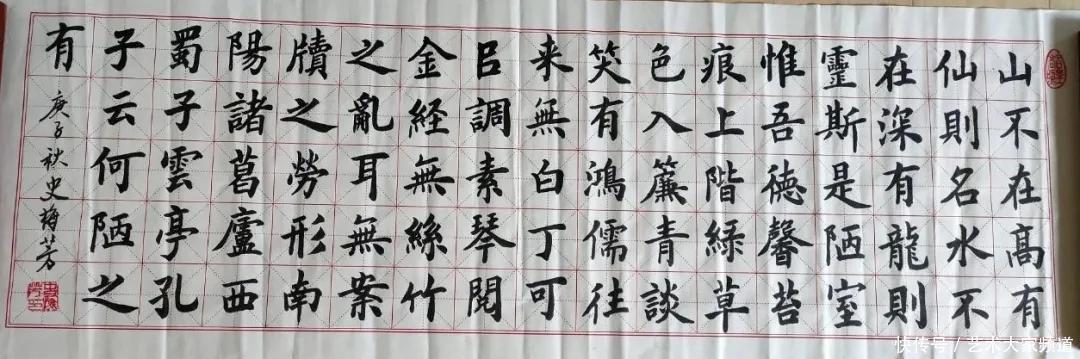 山不在高有
仙則名水不
在深有龍則
靈斯是陋室
惟吾德馨苔
痕上階綠草
色入簾青談
笑有鴻儒往
来無白丁可
㠯調素琴閱
金経無絲竹
之亂耳無案
牘之勞形南
陽諸葛廬西
蜀子雲亭孔
子云何陋之
有
庚子秋史梅芳
快传号/艺术大家频道